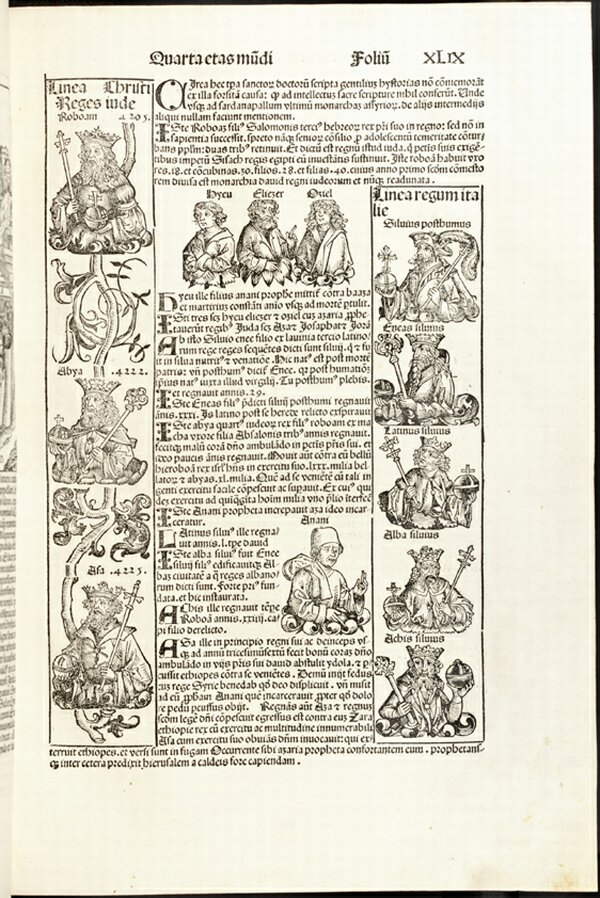 Quarta etas mūdi Foliū XLIX
Linea Christi
Reges iude
Roboam 4205.
Circa hec tpa sanctor doctorū scripta gentiliū hystorias nō cōmemorāt
ex illa forsitā causa: ꝙ ad intellectus sacre scripture nihil conferūt. Unde
vsqꝫ ad sardanapallum vltimū monarchas assyrior. de alijs intermedijs
aliqui nullam faciunt mentionem.
Iste Roboas filiꝰ Salomonis terciꝰ hebreor rex pri suo in regno: sed nō in
sapientia successit. spreto nāqꝫ senior cōsilio ꝓ adolescentū temeritate cōtur
bans pplm: duas tribꝰ retinuit. Et dictū est regnū istud iuda. q̄ petis suis exigē
tibus impetū Sisach regis egipti eū inuestātis sustinuit. Iste roboā habuit vxo
res.18. et cōcubinas.30. filios.28. et filias.40. cuius anno primo scōm comesto
rem diuisa est monarchia dauid regni iudeorum et nūqꝫ readunata.
Hyeu Eliezer Oziel
Linea regum ita
lie
Siluius posthumus
Hyeu ille filius anani prophe mittit cōtra baaza
et martirius constāti anio vsqꝫ ad mortē ptulit.
Isti tres scꝫ hyeu eliezer et oziel cuꝫ azaria, ꝓphe
tauerūt regibꝰ Iuda scꝫ Aza et Josaphat et Jorā
Ab isto Siluio enee filio ex lauinia tercio latino
rum rege reges sequētes dicti sunt siluij. q̄ et fu
it in silua nutritꝰ et venatiōe. Hic natꝰ est post mortē
patris: vn̄ posthumꝰ dicif Enee. qꝫ post humatiōꝫ
ipsius natꝰ iuxta illud virgilij. Tu posthumꝰ plebis.
et regnauit annis.29.
Iste Eneas filiꝰ p̄dicti siluij posthumi regnauit
ānis.xxxi. Is latino post se herede relicto expirauit
Iste abya quartꝰ iudeor rex filiꝰ roboam ex ma
cha vxore filia Absalonis tribꝰ annis regnauit.
fecitqꝫ malū corā dn̄o ambulādo in petis pris sui. et
ideo paucis ānis regnauit. Mouit aūt cōtra eū bellū
hieroboā rex isrl hn̄s in exercitu suo.lxxx.milia bel
lator et abyas.xl.milia. Quē ad se veniētē cū tali in
genti exercitu facile cōpescuit ac supauit. Ex cuiꝰ qui
dēz exercitu ad quīqꝫgīta hoīm milia vno p̄lio iterfec
Abya .4222.
Eneas siluius
Latinus siluius
Iste Anani propheta increpauit aza ideo incar
ceratur.
Anani
Latinus siluiꝰ ille regna
uit annis.l.tpe dauid
Iste alba siluiꝰ fuit Enee
siluij filiꝰ edificauitqꝫ Al
bas ciuitatē a q̄ reges albano
rum dicti sunt. Forte priꝰ fun
data.et hic instaurata.
Achis ille regnauit tēpe
Roboā annis.xxiiij.ca
pi filio derelicto.
Alba siluius
Asa .4225.
Achis siluius
Asa ille in principio regni sui ac deinceps vs
qꝫ ad annū tricesimūsextū fecit bonū coraꝫ dn̄o
ambulādo in vijs pris sui dauid abstulit ydola. et ꝑ
cussit ethiopes cōtra se veniētes. Demū inijt fedus
cuꝫ rege Syrie benedab qd̄ deo displicuit. vn̄ misit
ad eū ꝓphaꝫ Anani quē incarcerauit ꝓpter qd̄ dolo
re pedū pcussus obijt. Regnās aūt Aza et regnuꝫ
scōm legē dn̄i cōpescuit egressus est contra euꝫ Zara
ethiopie rex cū exercitu ac multitudine innumerabili
Asa cum exercitu suo obuiās dn̄m inuocauit: qui ex
terruit ethiopes.et versi sunt in fugam Occurrente sibi azaria propheta confortantem eum. prophetans
qꝫ inter cetera predixit hierusalem a caldeis fore capiendam.